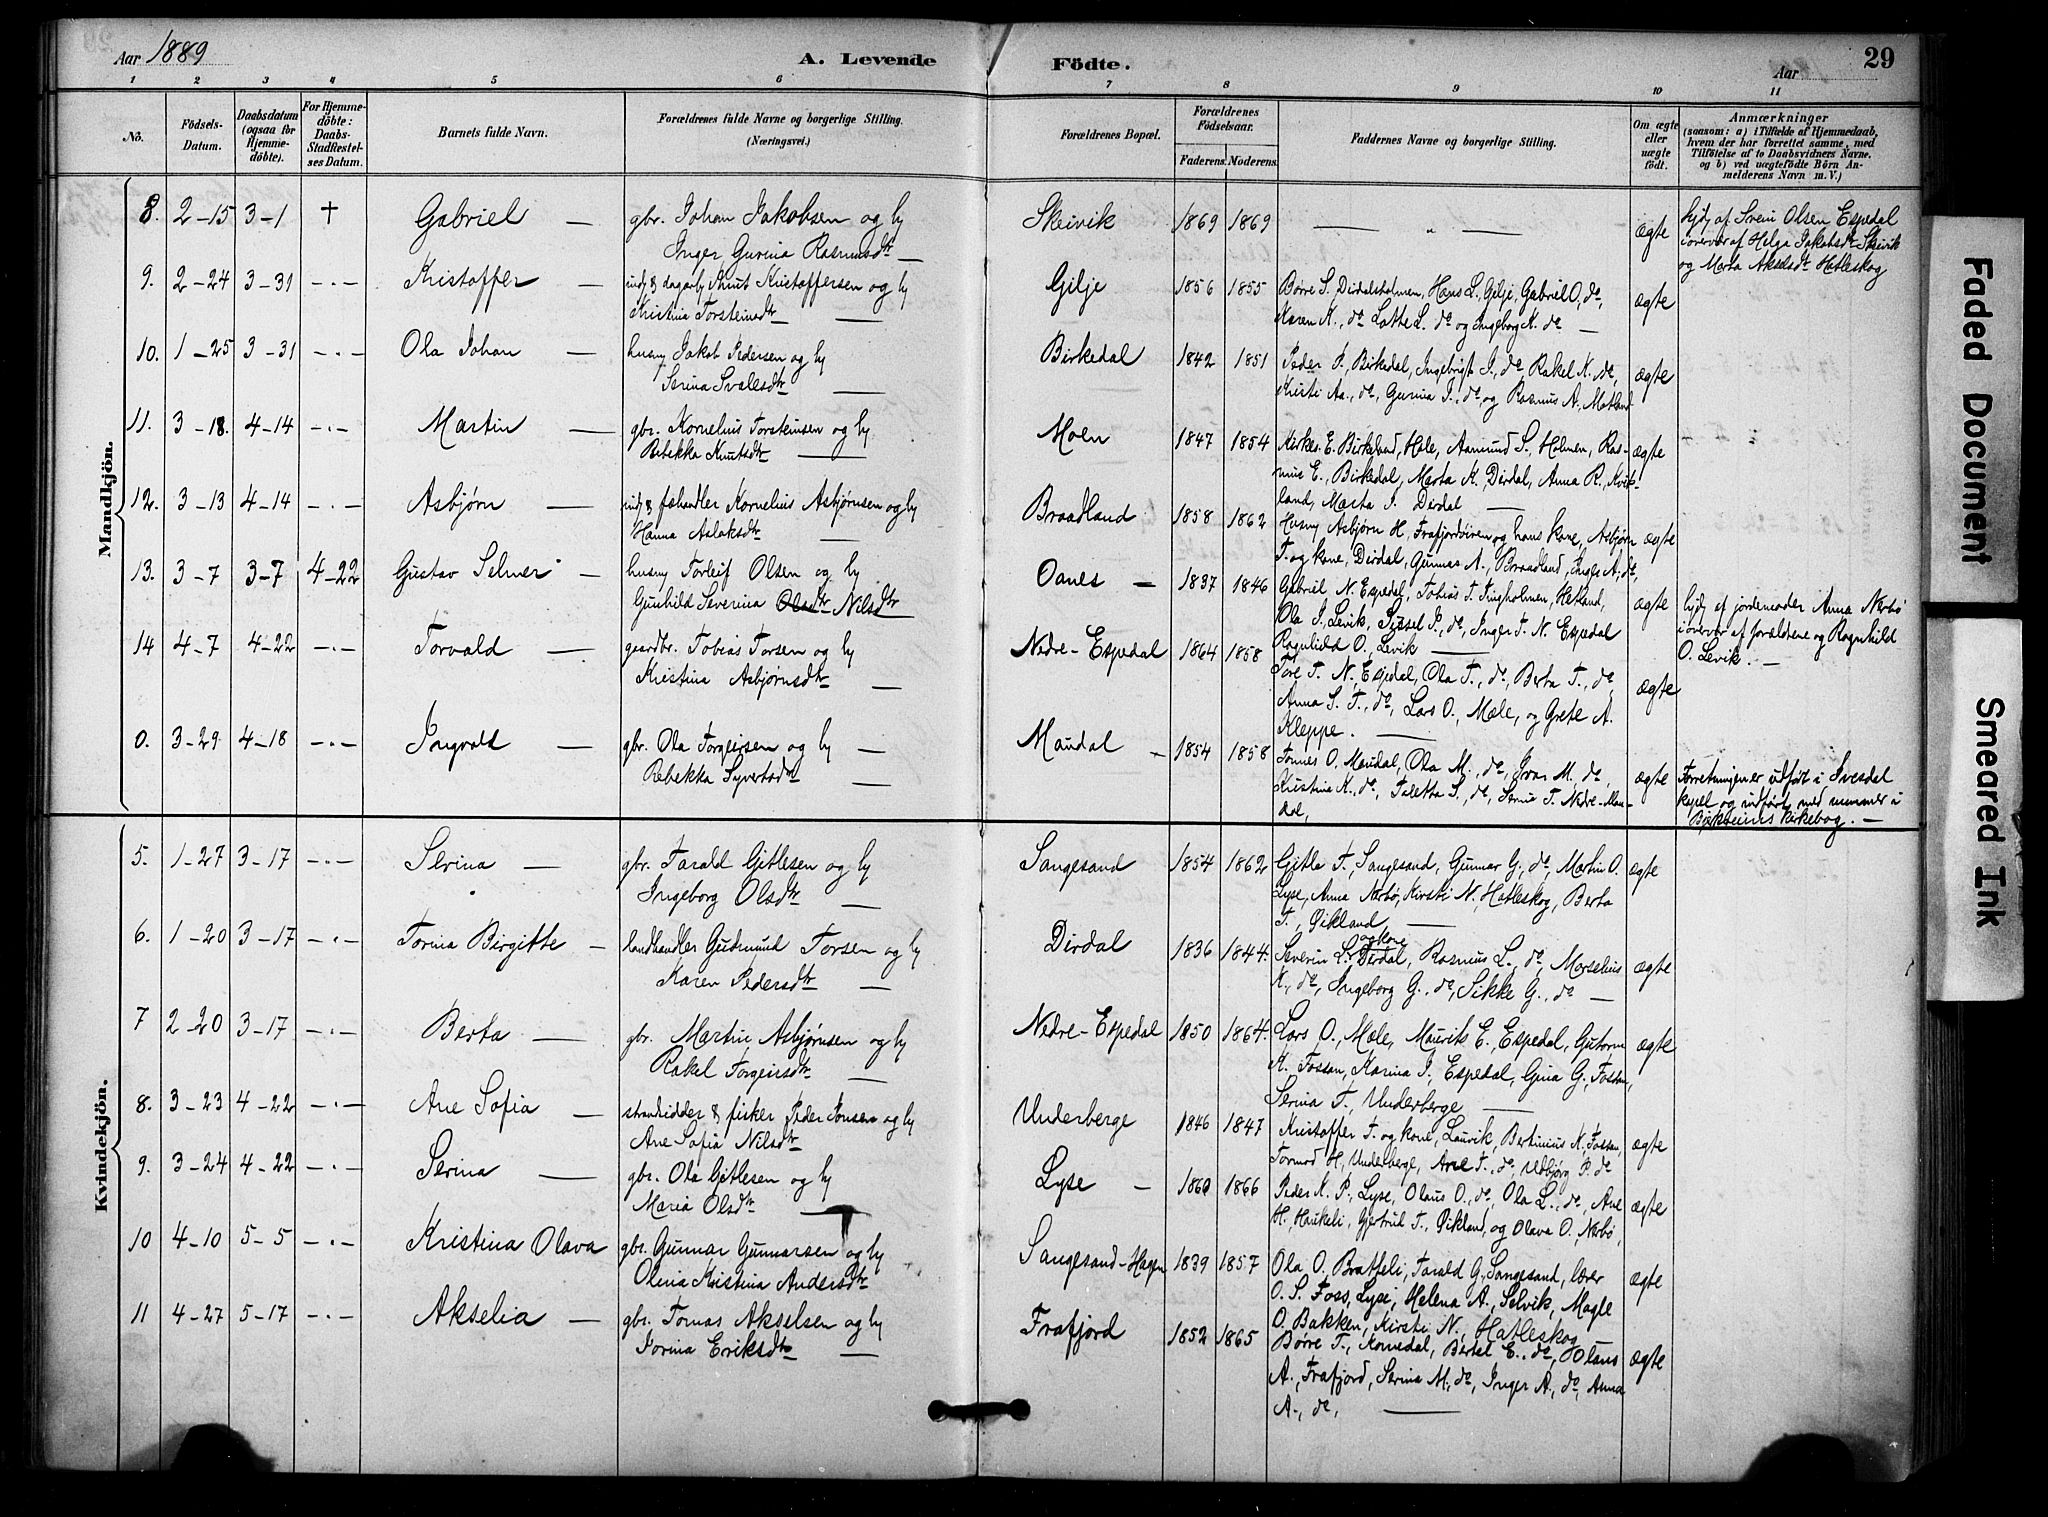 Aar 1889
A. Levende Födte.
Aar
29
1 2 3 4 5 6 7 8 9 10 11
Nō.
Födsels-Datum.
Daabsdatum (ogsaa for Hjemmedöbte).
For Hjemmedöbte: Daabs-Stadfæstelses Datum.
Barnets fulde Navn.
Forældrenes fulde Navne og borgerlige Stilling. (Næringsvei.)
Forældrenes Bopæl.
Forældrenes Födselsaar.
Faderens. Moderens.
Faddernes Navne og borgerlige Stilling.
Om ægte eller uægte født.
Anmærkninger
(saasom: a) i Tilfælde af Hjemmedaab,
hvem der har forrettet samme, med
Tilföielse af to Daabsvidners Navne.
og b) ved uægtefödte Börn Anmelderens Navn m.V.)
Mandkjön.
8. 2-15 3-1 † Gabriel — gbr. Johan Jakobsen og hu
Inger Gurina Rasmusdtr —
Skeivik 1869 1869 — " — ægte
hjdp af Svein Olsen Espedal
i overvær af Helga Jakobsdtr Skeivik
og Marta Akselsdtr Hatleskog
9. 2-24 3-31 -"- Kristoffer — indr & dagarb Knut Kristoffersen og hu
Kristina Torsteinsdtr —
Gilje 1856 1855 Børre S. Dirdalsholmen, Hans L. Gilje, Gabriel O. do,
Karen K., do Lotte L. do og Ingeborg K. do — ægte
10. 1-25 3-31 -"- Ola Johan — husm Jakob Pedersen og hu
Serina Svalesdtr —
Birkedal 1842 1851 Peder T., Birkedal, Ingebrigt I., do, Rakel K. do,
Kristi Aa., do, Gurina I., do, og Rasmus A. Matland ægte
11. 3-18. 4-14 -"- Martin — gbr. Kornelius Torsteinsen og hu
Rebekka Knutsdtr —
Moen 1847 1854 Kirkes. E. Birkeland, Hole, Aamund S., Holmen, Ras-
mus E., Birkedal, Marta K. Dirdal, Anna R.,
land, Marta J. Dirdal — ægte
12. 3-13 4-14 -"- Asbjørn — indr & fæhandler Kornelius Asbjørnsen og hu
Hanna Aslaksdtr —
Braadland 1858 1862 Husm Asbjørn H, Frafjordøiren og hans kone, Asbjørn
T. og kone, Dirdal, Gunnar A., Braadland, Inger A., do, ægte
13. 3-7 3-7 4-22 Gustav Selmer — husm Torleif Olsen og hu
Gunhild Severina Olsdtr Nilsdtr
Oanes — 1837 1846 Gabriel N. Espedal, Tobias T. Tingholmen, Hetland,
Ola I. Levik, Sissel P., do, Inger T. N. Espedal
Ragnhild O. Levik — ægte
hjdp af jordemoder Anna Nerbø
i overvær af forældrene og Ragnhild
O. Levik. —
14 4-7 4-22 -"- Torvald — gaardbr. Tobias Torsen og hu
Kristina Asbjørnsdtr —
Nedre-Espedal 1864 1858 Tore T. N. Espedal, Ola T., do, Berta T., do,
Anna S. T., do, Lars O., Mæle, og Grete A.
Kleppe. — ægte
0. 3-29 4-18 -"- Ingvald — gbr. Ola Torgeirsen og hu —
Rebekka Syvertsdtr —
Maudal — 1854 1858 Tønnes O. Maudal, Ola M., do, Ivar M. do,
Kristina K., do, Taletta S., do, Serina T. Nedre-Mau-
dal, ægte
Forretningen er udført i Ivesdal
kapel og indført med nummer i
Bjerkreims kirkebog. —
Kvindekjön.
5. 1-27 3-17 -"- Serina — gbr. Tarald Gitlesen og hu
Ingeborg Olsdtr —
Sangesand 1854 1862 Gitla T., Sangesand, Gunnar G., do, Martin O.
Lyse, Anna Nerbø, Kirsti N., Hatleskog, Berta
T., Øikland — ægte
6. 1-20 3-17 -"- Torina Birgitte — landhandler Gudmund Torsen og hu
Karen Pedersdtr —
Dirdal 1836 1844. Severin L. og kone Dirdal, Rasmus L., do, Marselius
K., do, Ingeborg G., do, Sikke G., do — ægte
7 2-20 3-17 -"- Berta — gbr. Martin Asbjørnsen og hu
Rakel Torgeirsdtr —
Nedre-Espedal 1850 1864. Lars O., Mæle, Maurits E., Espedal, Gutorm
K. Fossan, Karina I., Espedal, Gina G., Fossan,
Serina T., Underberge — ægte
8. 3-23 4-22 -"- Ane Sofia — strandsidder & fisker Peder Jonsen og hu
Ane Sofia Nilsdtr
Underberge 1846 1847 Kristoffer T. og kone, Lauvik, Bertinius K. Fossan,
Tormod H, Underberge, Ane T., do, Udbjørg P. do ægte
9. 3-24 4-22 -"- Serina — gbr. Ola Gitlesen og hu
Maria Olsdtr —
Lyse — 1860 1866 Peder K. P., Lyse, Olaus O., do, Ola L., do, Ane
H., Haukeli, Gjertrud T., Øikland, og Olava O., Nerbø, ægte
10 4-10 5-5 -"- Kristina Olava gbr. Gunnar Gunnarsen og hu
Olina Kristina Andersdtr
Sangesand-Hagen 1839 1857 Ola O. Bratteli, Tarald G., Sangesand, lærer
O. S. Foss, Lyse, Helena A., Selvik, Magle
O. Bakken, Kirsti N., Hatleskog — ægte
11 4-27 5-17 -"- Akselia — gbr. Tomas Akselsen og hu
Jorina Eriksdtr —
Frafjord 1852 1865 Børre T., Kommedal, Bertel E., do, Olaus
A., Frafjord, Serina M., do, Inger A., do, Anna
A., do, — ægte
Faded Document
Smeared Ink